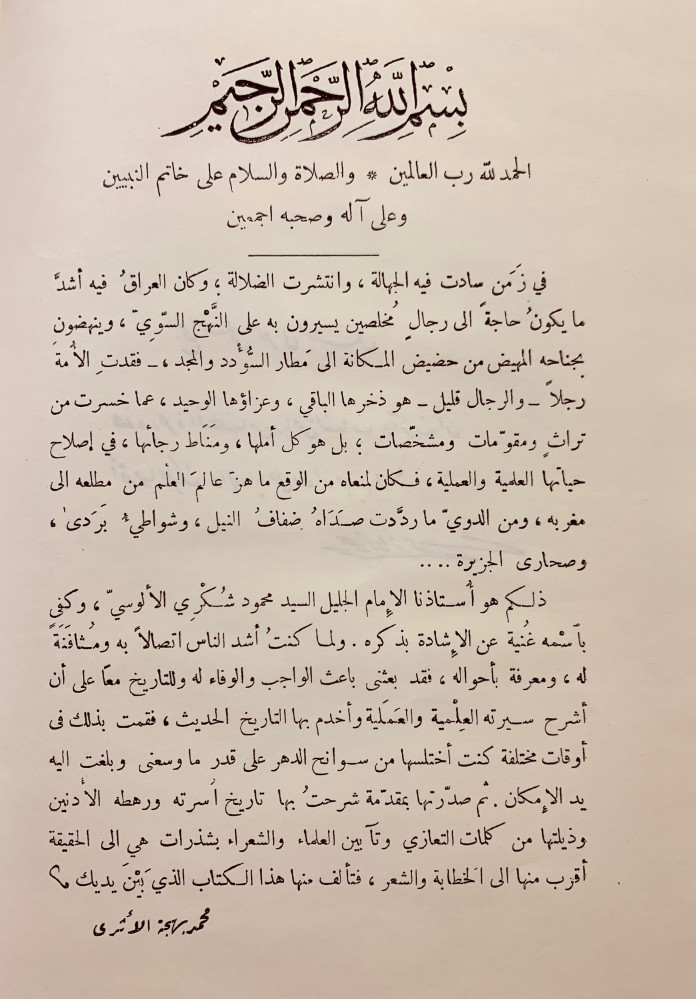 بِسْمِ اللَّهِ الرَّحْمنِ الرَّحِيمِ
الحمد لله رب العالمين * والصلاة والسلام على خاتم النبيين
وعلى آله وصحبه اجمعين
في زَمَن سادت فيه الجهالة ، وانتشرت الضلالة ؛ وكان العراقُ فيه أشدَّ
ما يكونُ حاجةً الى رجالٍ مُخلصين يسيرون به على النَّهْج السَّوِيّ ، وينهضون
بجناحه المهيض من حضيض المكانة الى مَطار السُّؤْدد والمجد ، ـ فقدت ِ الأمة
رجلاً ـ والرجال قليل ـ هو ذخرها الباقي ، وعزاؤها الوحيد ، عما خسرت من
تراثٍ ومقوّمات ومشخّصات ؛ بل هو كل أملها ، ومَنَاط رجائها ، في إصلاح
حياتها العلمية والعملية ، فكان لمنعاه من الوقع ما هزَّ عالمَ العلْم من مطلعه الى
مغربه ، ومن الدويّ ما ردَّدت صَدَاهُ ضفافُ النيل ، وشواطيء بَرَدىٰ ،
وصحارى الجزيرة ....
ذلكم هو أُستاذنا الإمام الجليل السيد محمود شُكْري الألوسيّ ، وكفى
بآسْمه غُنية عن الإشادة بذكره . ولما كنتُ أشد الناس اتصالاً به ومُثافَنَةً
له ، ومعرفة بأحواله ، فقد بعثنى باعث الواجب والوفاء له وللتاريخ معًا على أن
أشرح سيرته العِلْمية والعَمَلية وأخدم بها التاريخ الحديث ، فقمت بذلك فى
أوقات مختلفة كنت أختلسها من سوانح الدهر على قدر ما وسعنى وبلغت اليه
يد الإمكان . ثم صدّرتها بمقدّمة شرحتُ بها تاريخ أسرته ورهطه الأدنين
وذيلتها من كلمات التعازي وتآبين العلماء والشعراء بشذرات هي الى الحقيقة
أقرب منها الى الخطابة والشعر ، فتألف منها هذا الكتاب الذي بَيْنَ يديك
محمد بهجة الأثرى